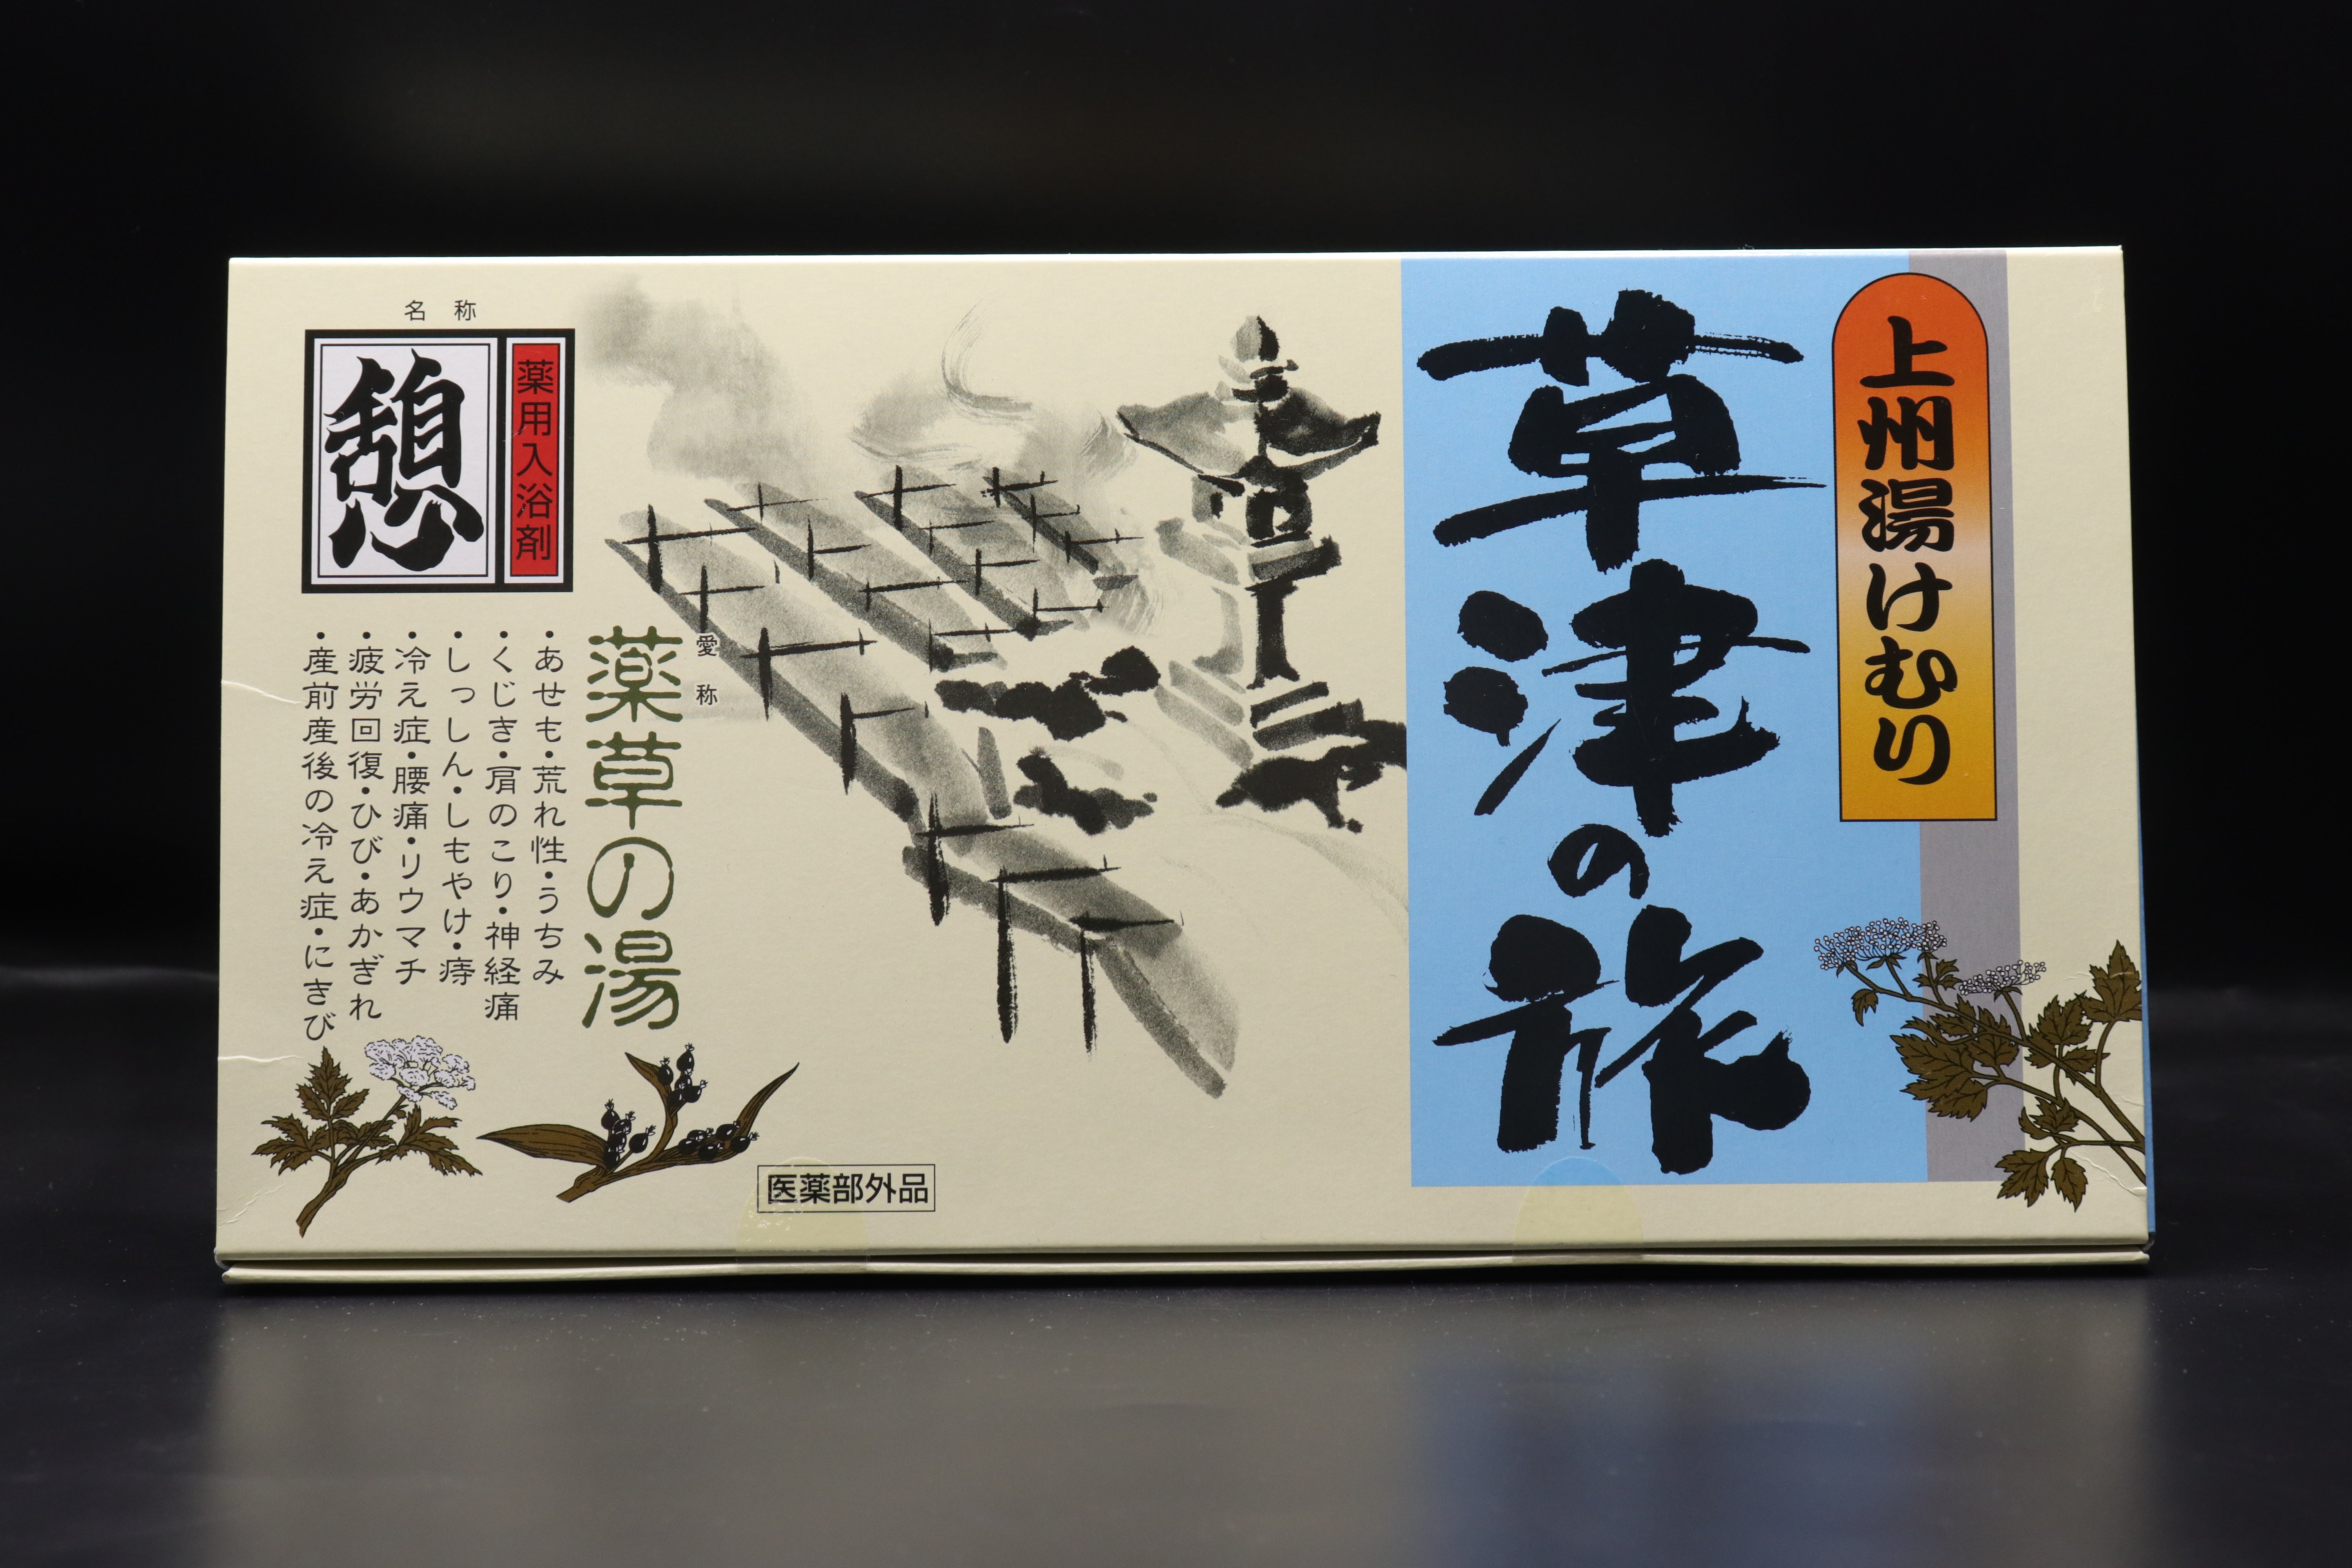 上州湯けむり
草津の旅
名称
薬用入浴剤
憩
愛称
薬草の湯
・あせも・荒れ性・うちみ
・くじき・肩のこり・神経痛
・しっしん・しもやけ・痔
・冷え症・腰痛・リウマチ
・疲労回復・ひび・あかぎれ
・産前産後の冷え症・にきび
医薬部外品